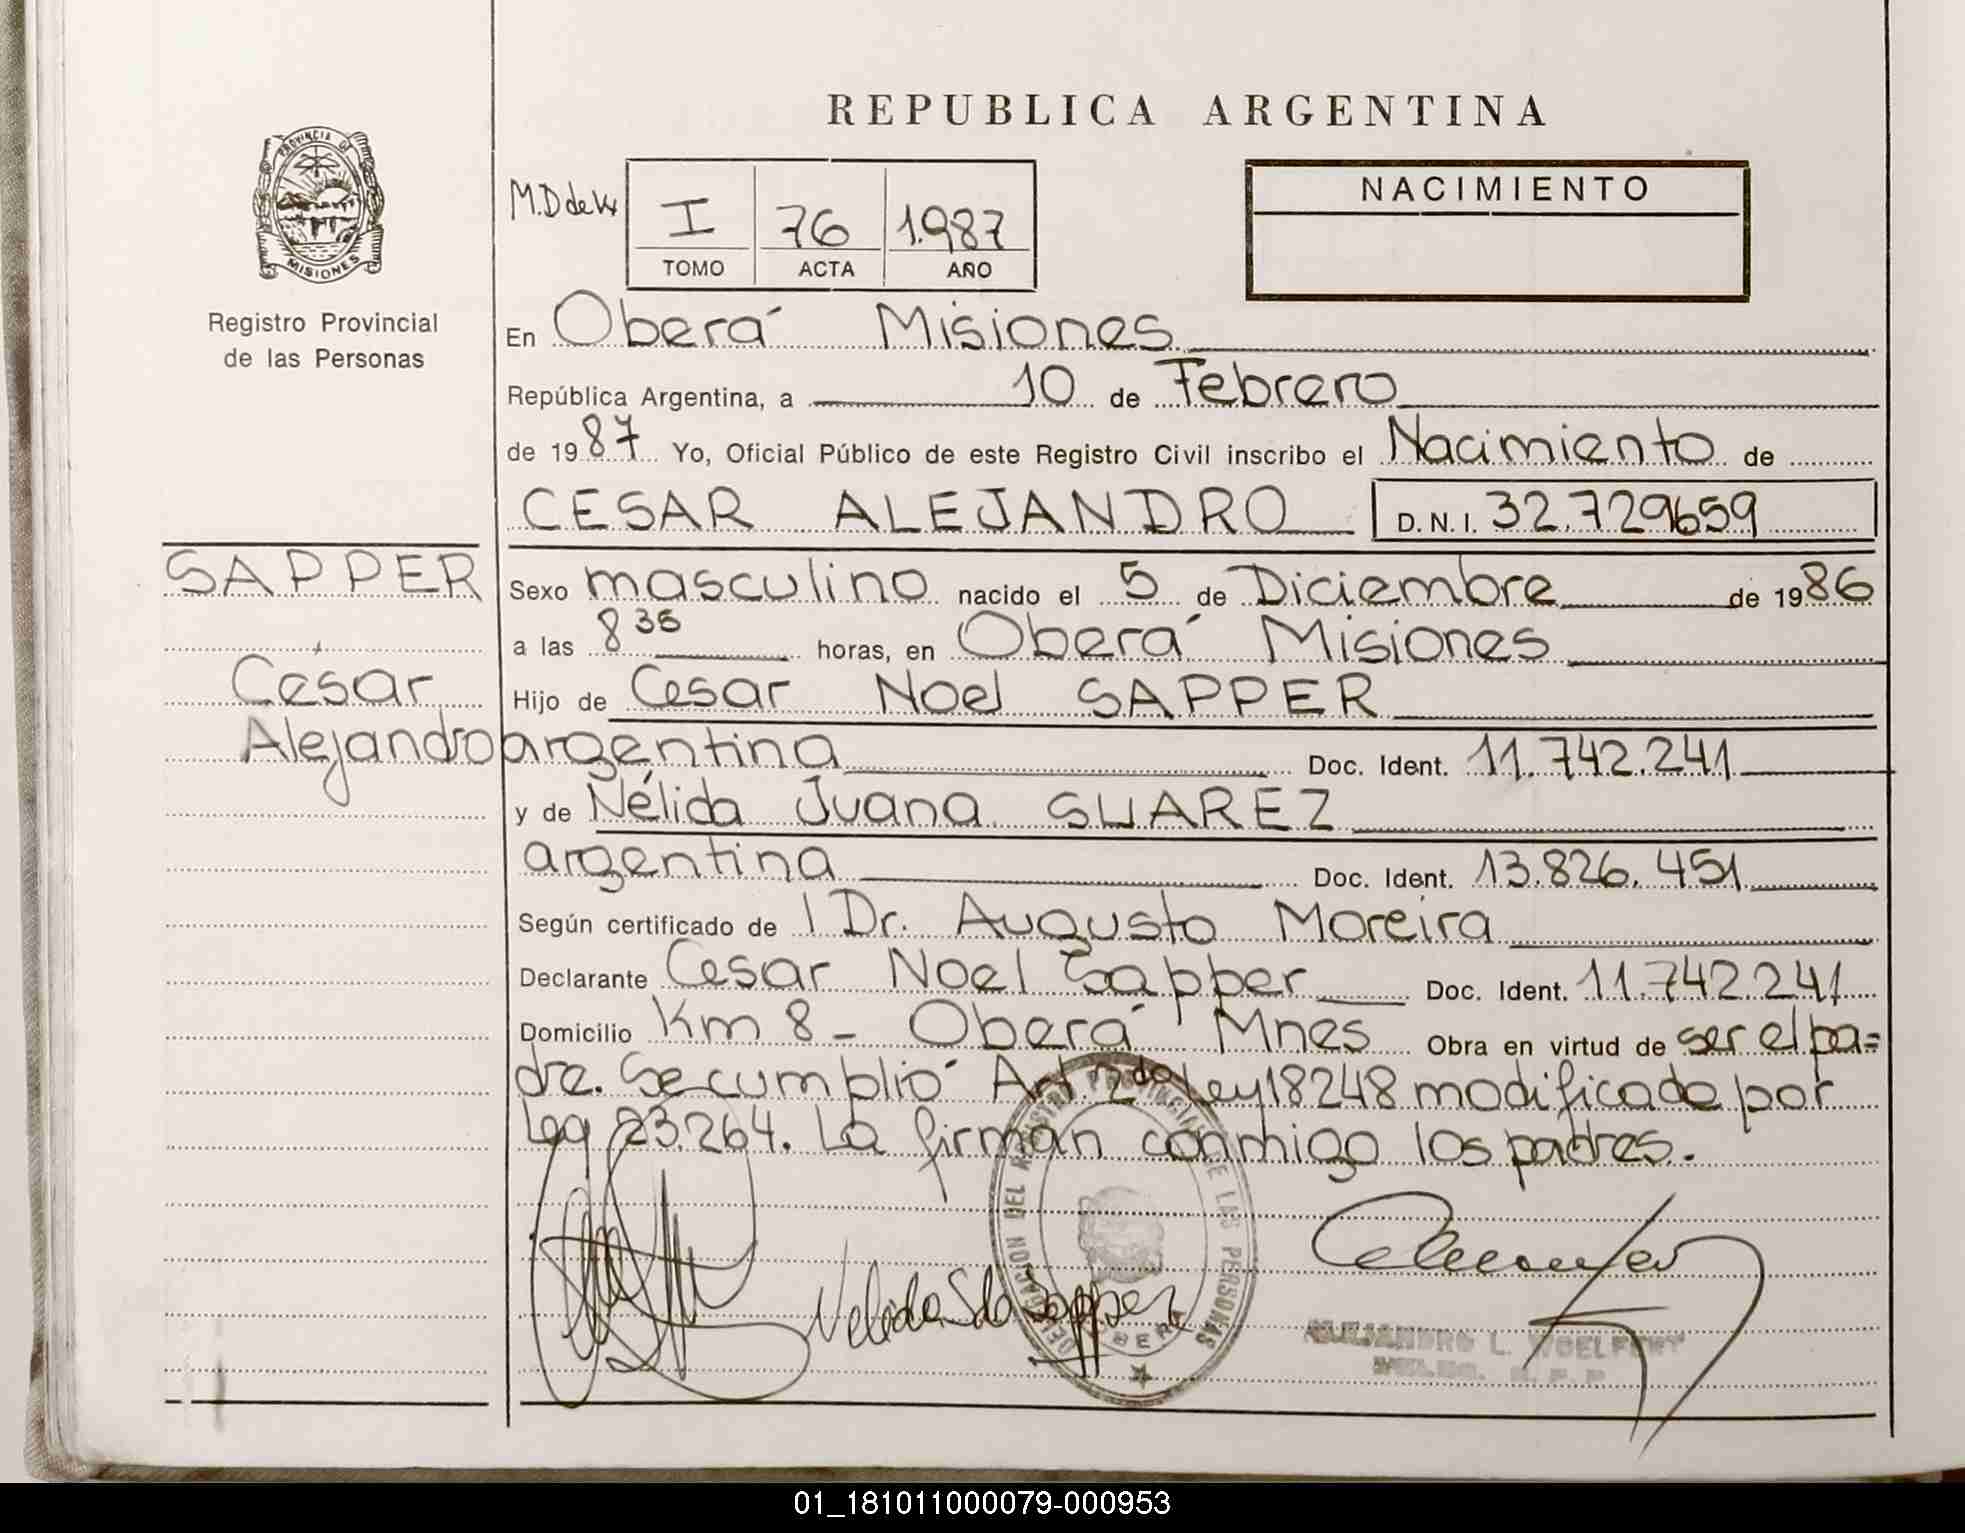 REPUBLICA ARGENTINA
PROVINCIA DE
MISIONES
Registro Provincial
de las Personas
M.D de
I 76 1.987
TOMO ACTA AÑO
NACIMIENTO
En Oberá Misiones
República Argentina, a 10 de Febrero
de 1987 Yo, Oficial Público de este Registro Civil inscribo el Nacimiento de
CESAR ALEJANDRO D.N.I. 32.729659
SAPPER
César
Alejandro
Sexo masculino nacido el 5 de Diciembre de 1986
a las 8 35 horas, en Oberá Misiones
Hijo de Cesar Noel SAPPER
argentina Doc. Ident. 11.742.241
y de Nélida Juana SUAREZ
argentina Doc. Ident. 13.826.451
Según certificado de l Dr. Augusto Moreira
Declarante Cesar Noel Sapper Doc. Ident. 11.742.241
Domicilio Km 8 - Oberá Mnes Obra en virtud de ser el pa=
dre. Se cumplió Art. 2do Ley 18248 modificado por
Ley 23.264. La firman conmigo los padres.
Nelida S de Sapper
DELEGACION DEL REGISTRO PROVINCIAL DE LAS PERSONAS
OBERA
ALEJANDRO L.
R. P. P.
01_181011000079-000953